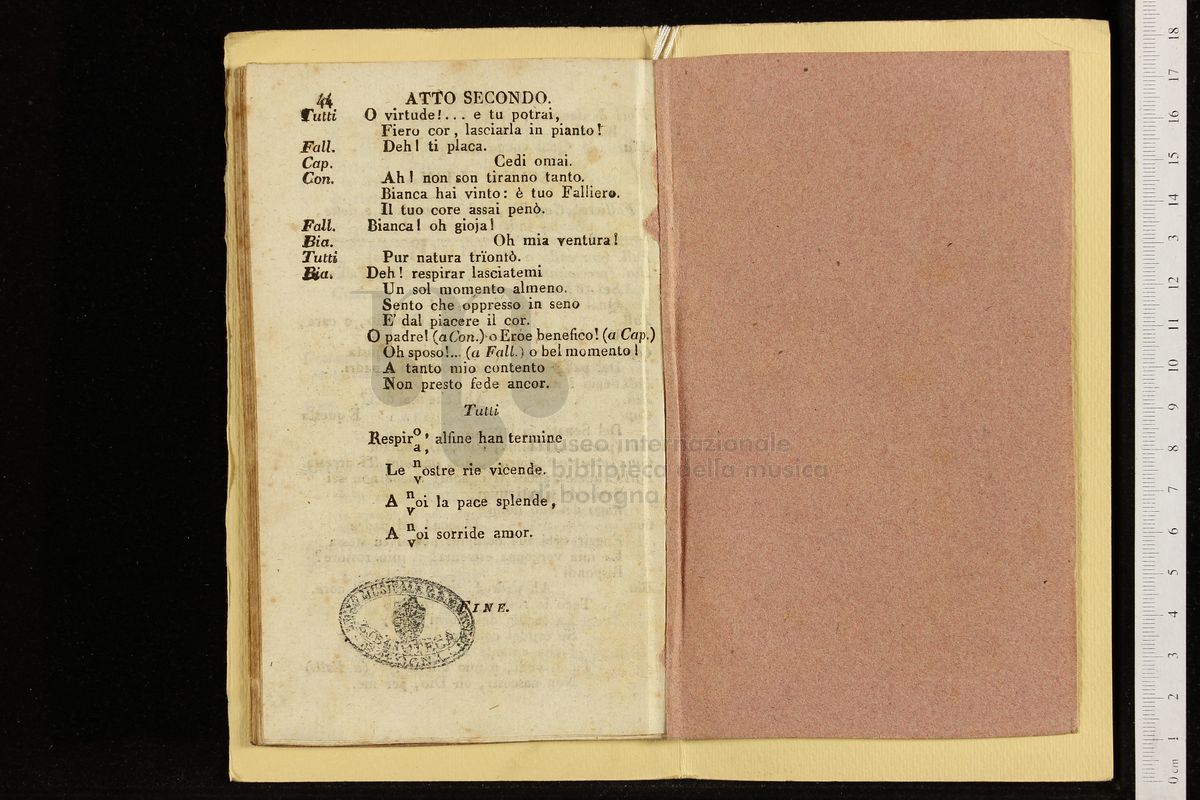 44 ATTO SECONDO.
Tutti O virtude!... e tu potrai,
Fiero cor, lasciarla in pianto!
Fall. Deh! ti placa.
Cap. Cedi omai.
Con. Ah! non son tiranno tanto.
Bianca hai vinto: è tuo Falliero.
Il tuo core assai penò.
Fall. Bianca! oh gioja!
Bia. Oh mia ventura!
Tutti Pur natura trïontò.
Bia. Deh! respirar lasciatemi
Un sol momento almeno.
Sento che oppresso in seno
E' dal piacere il cor.
O padre! (a Con.) o Eroe benefico! (a Cap.)
Oh sposo!... (a Fall.) o bel momento!
A tanto mio contento
Non presto fede ancor.
Tutti
Respir o/a, alfine han termine
Le n/vostre rie vicende.
A n/voi la pace splende,
A n/voi sorride amor.
FINE.
LICEO MUSICALE
BIBLIOTECA
museo internazionale
e biblioteca della musica
di bologna
0 cm 1 2 3 4 5 6 7 8 9 10 11 12 13 14 15 16 17 18